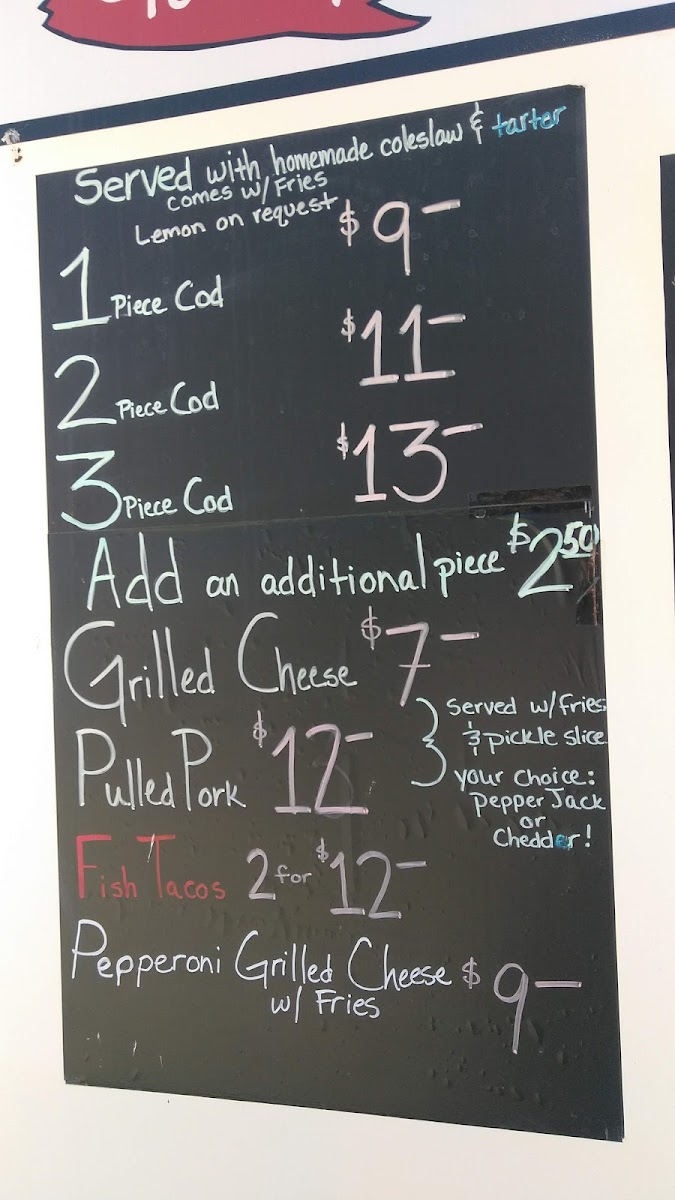 Served with homemade coleslaw & tarter
comes w/ Fries
Lemon on request
1 Piece Cod $9-
2 Piece Cod $11-
3 Piece Cod $13-
Add an additional piece $2 50
Grilled Cheese $7-
Pulled Pork $12-
Served w/fries
& pickle slice
your choice:
pepper Jack
or
Chedder!
Fish Tacos 2 for $12-
Pepperoni Grilled Cheese $9-
w/ Fries